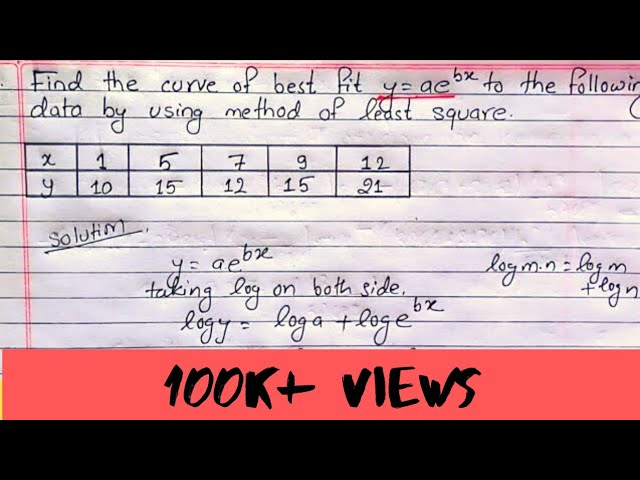 Find the curve of best fit y=ae^bx to the followin
data by using method of least square.
x 1 5 7 9 12
y 10 15 12 15 21
Solution.
y = ae^bx
taking log on both side.
logy = loga + loge^bx
logm.n = logm
+ logn
100K+ VIEWS